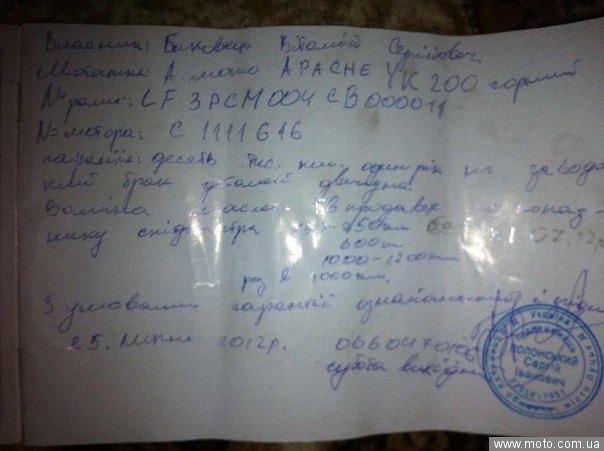 Власник: Биковець Віталій Сергійович
Мотоцикл: А. мото APACHE YK 200 гарний
№ рами: LF3PCM004CB000011
№ мотора: C 1111616
гарантія: десять тис. км. один рік на заводс
кий брак деталей двигуна
Заміна масла в продавця по показ
нику спідометра 250км 07.12р
600км
1000-1200км
раз в 1000км.
З умовами гарантії ознайомлений і згоден
25. липня 2012р.
субота вихідний
Україна
ПОЛОНСЬКИЙ
Сергій
Іванович
www.moto.com.ua